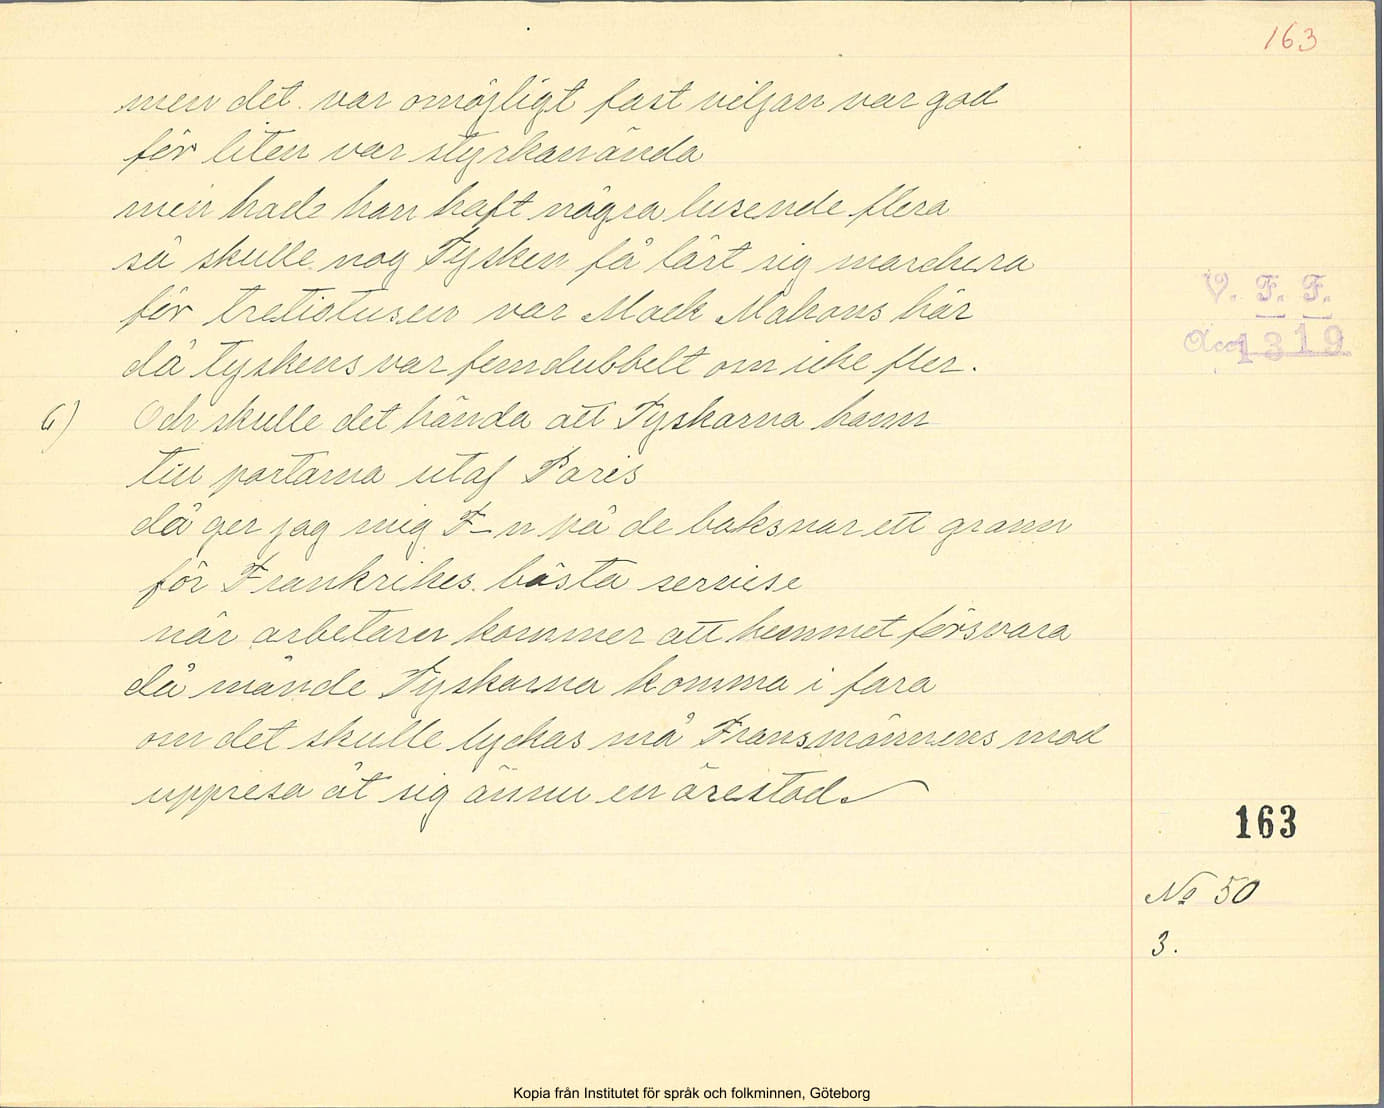 163
men det var omöjligt fast viljan var god
för liten var styrkan ända
men hade han haft några tusende flera
så skulle nog Tysken få lärt sig marchera
för tretiotusen var Mack Mahons här
då tyskens var femdubbelt om icke fler.
V. F. F.
Acc 1319
6) Och skulle det hända att Tyskarna hann
till portarna utaf Paris
då ger jag mig F-n på de baksnar ett grann
för Frankrikes bästa servise
när arbetaren kommer att hemmet försvara
då månde Tyskarna komma i fara
om det skulle lyckas må Fransmännens mod
uppresa åt sig ännu en ärestod
163
No 50
3.
Kopia från Institutet för språk och folkminnen, Göteborg